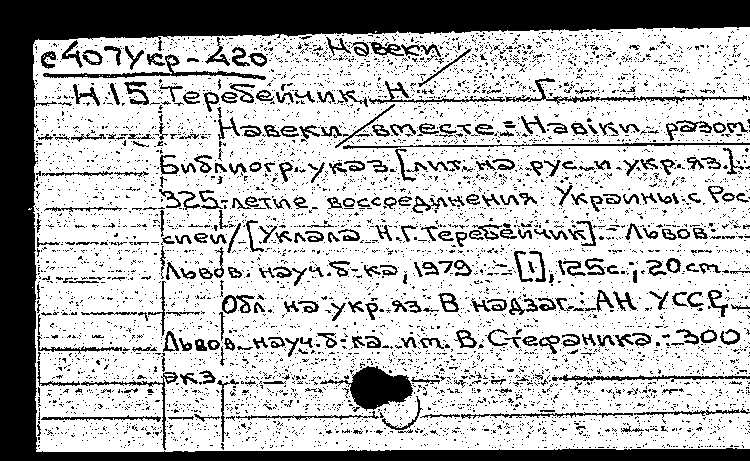 с407Укр-420 Навеки
Н15 Теребейчик, Н Г.
Навеки вместе = Навiки разом:
Библиогр. указ. [лит. на рус. и укр. яз.].
325-летие воссоединения Украины с Рос
сией/[Уклала Н.Г. Теребейчик]. - Львов:
Львов. науч. б-ка, 1979. - [1], 125с.; 20 см.
Обл. на укр. яз. В надзаг.: АН УССР,
Львов. науч. б-ка им. В. Стефаника. - 300
экз.